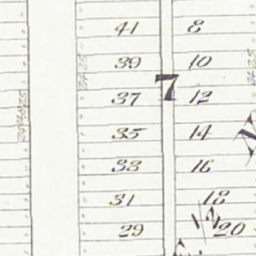 41 8
39 10
7
37 12
35 14
33 16
31 18
1/2
29 20